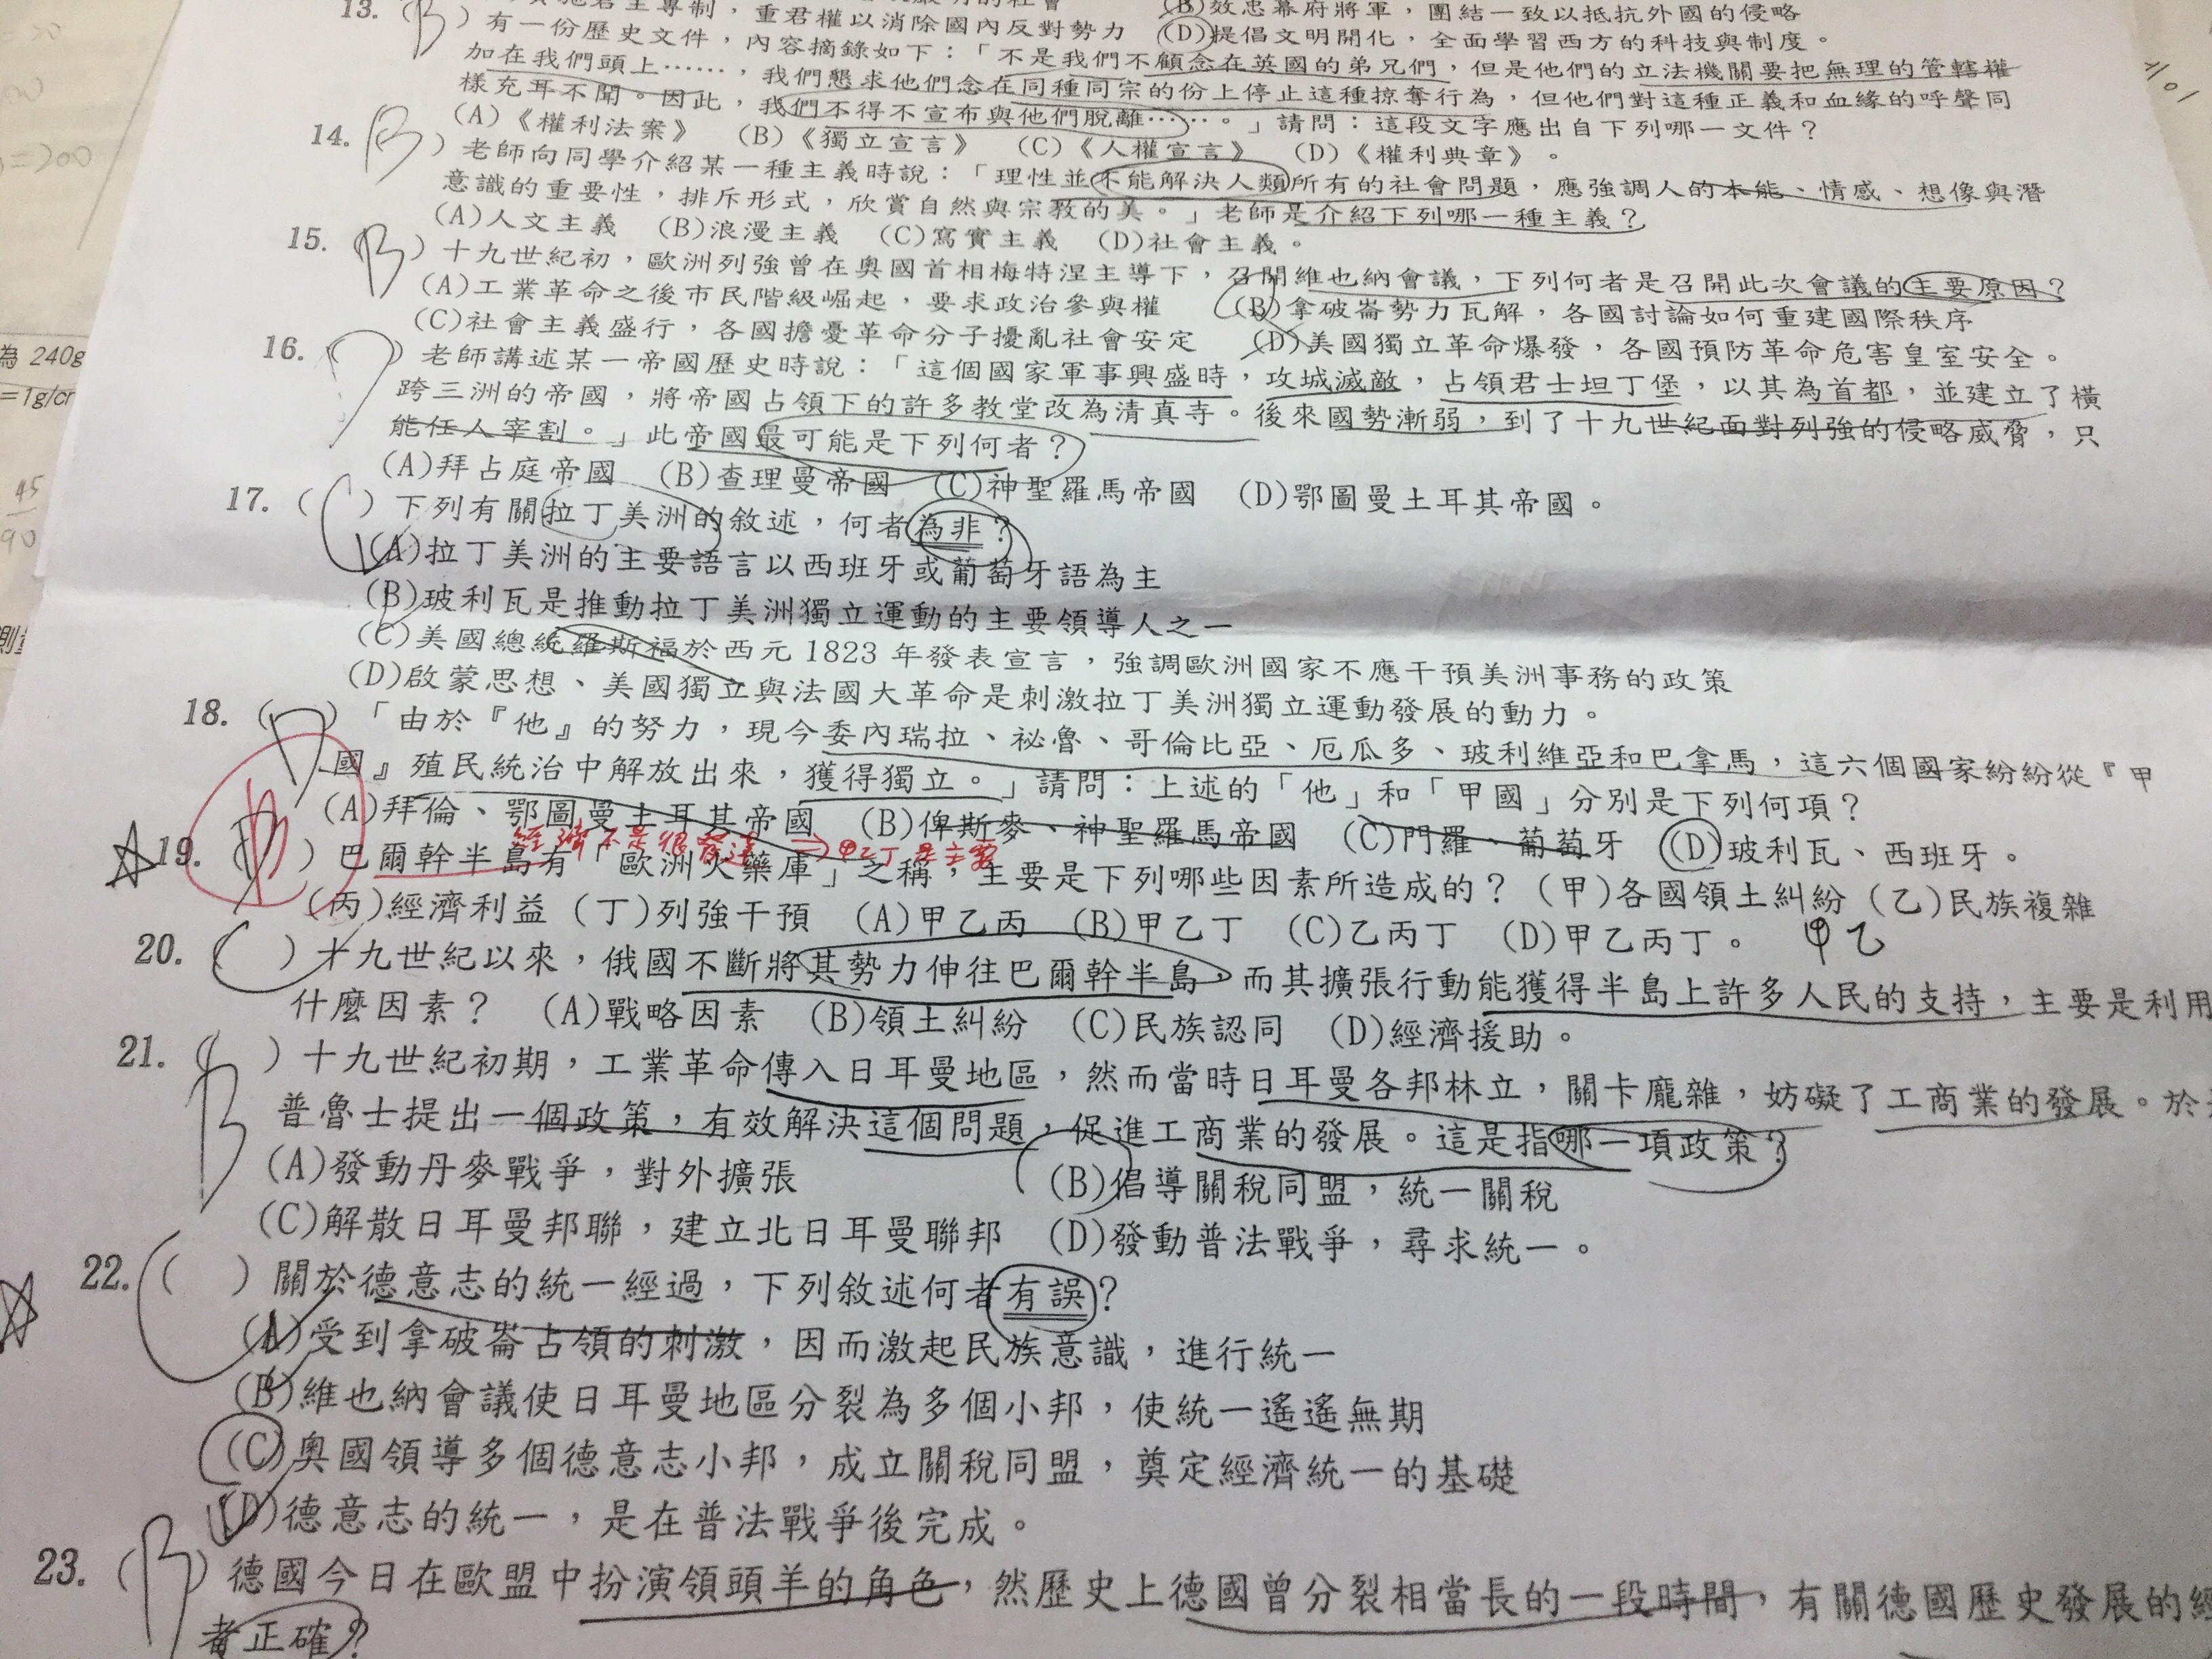 (B)效忠幕府將軍，團結一致以抵抗外國的侵略
君主專制，重君權以消除國內反對勢力 (D)提倡文明開化，全面學習西方的科技與制度。
13. (B) 有一份歷史文件，內容摘錄如下：「不是我們不顧念在英國的弟兄們，但是他們的立法機關要把無理的管轄權
加在我們頭上……，我們懇求他們念在同種同宗的份上停止這種掠奪行為，但他們對這種正義和血緣的呼聲同
樣充耳不聞。因此，我們不得不宣布與他們脫離……。」請問：這段文字應出自下列哪一文件？
(A)《權利法案》 (B)《獨立宣言》 (C)《人權宣言》 (D)《權利典章》。
14. (B) 老師向同學介紹某一種主義時說：「理性並不能解決人類所有的社會問題，應強調人的本能、情感、想像與潛
意識的重要性，排斥形式，欣賞自然與宗教的美。」老師是介紹下列哪一種主義？
(A)人文主義 (B)浪漫主義 (C)寫實主義 (D)社會主義。
15. (B) 十九世紀初，歐洲列強曾在奧國首相梅特涅主導下，召開維也納會議，下列何者是召開此次會議的主要原因？
(A)工業革命之後市民階級崛起，要求政治參與權 (B)拿破崙勢力瓦解，各國討論如何重建國際秩序
(C)社會主義盛行，各國擔憂革命分子擾亂社會安定 (D)美國獨立革命爆發，各國預防革命危害皇室安全。
16. ( ) 老師講述某一帝國歷史時說：「這個國家軍事興盛時，攻城滅敵，占領君士坦丁堡，以其為首都，並建立了橫
跨三洲的帝國，將帝國占領下的許多教堂改為清真寺。後來國勢漸弱，到了十九世紀面對列強的侵略威脅，只
能任人宰割。」此帝國最可能是下列何者？
(A)拜占庭帝國 (B)查理曼帝國 (C)神聖羅馬帝國 (D)鄂圖曼土耳其帝國。
17. (C) 下列有關拉丁美洲的敘述，何者為非？
(A)拉丁美洲的主要語言以西班牙或葡萄牙語為主
(B)玻利瓦是推動拉丁美洲獨立運動的主要領導人之一
(C)美國總統羅斯福於西元 1823 年發表宣言，強調歐洲國家不應干預美洲事務的政策
(D)啟蒙思想、美國獨立與法國大革命是刺激拉丁美洲獨立運動發展的動力。
18. (D) 「由於『他』的努力，現今委內瑞拉、祕魯、哥倫比亞、厄瓜多、玻利維亞和巴拿馬，這六個國家紛紛從『甲
國』殖民統治中解放出來，獲得獨立。」請問：上述的「他」和「甲國」分別是下列何項？
(A)拜倫、鄂圖曼土耳其帝國 (B)俾斯麥、神聖羅馬帝國 (C)門羅、葡萄牙 (D)玻利瓦、西班牙。
經濟不是很發達 ⇒甲乙丁是主要
19. ( ) 巴爾幹半島有「歐洲火藥庫」之稱，主要是下列哪些因素所造成的？ (甲)各國領土糾紛 (乙)民族複雜
(丙)經濟利益 (丁)列強干預 (A)甲乙丙 (B)甲乙丁 (C)乙丙丁 (D)甲乙丙丁。 甲乙
20. (C) 十九世紀以來，俄國不斷將其勢力伸往巴爾幹半島，而其擴張行動能獲得半島上許多人民的支持，主要是利用
什麼因素？ (A)戰略因素 (B)領土糾紛 (C)民族認同 (D)經濟援助。
21. (B) 十九世紀初期，工業革命傳入日耳曼地區，然而當時日耳曼各邦林立，關卡龐雜，妨礙了工商業的發展。於
普魯士提出一個政策，有效解決這個問題，促進工商業的發展。這是指哪一項政策？
(A)發動丹麥戰爭，對外擴張 (B)倡導關稅同盟，統一關稅
(C)解散日耳曼邦聯，建立北日耳曼聯邦 (D)發動普法戰爭，尋求統一。
22. (C) 關於德意志的統一經過，下列敘述何者有誤？
(A)受到拿破崙占領的刺激，因而激起民族意識，進行統一
(B)維也納會議使日耳曼地區分裂為多個小邦，使統一遙遙無期
(C)奧國領導多個德意志小邦，成立關稅同盟，奠定經濟統一的基礎
(D)德意志的統一，是在普法戰爭後完成。
23. (B) 德國今日在歐盟中扮演領頭羊的角色，然歷史上德國曾分裂相當長的一段時間，有關德國歷史發展的
者正確？
為 240g
=1g/cm
45
90
=200